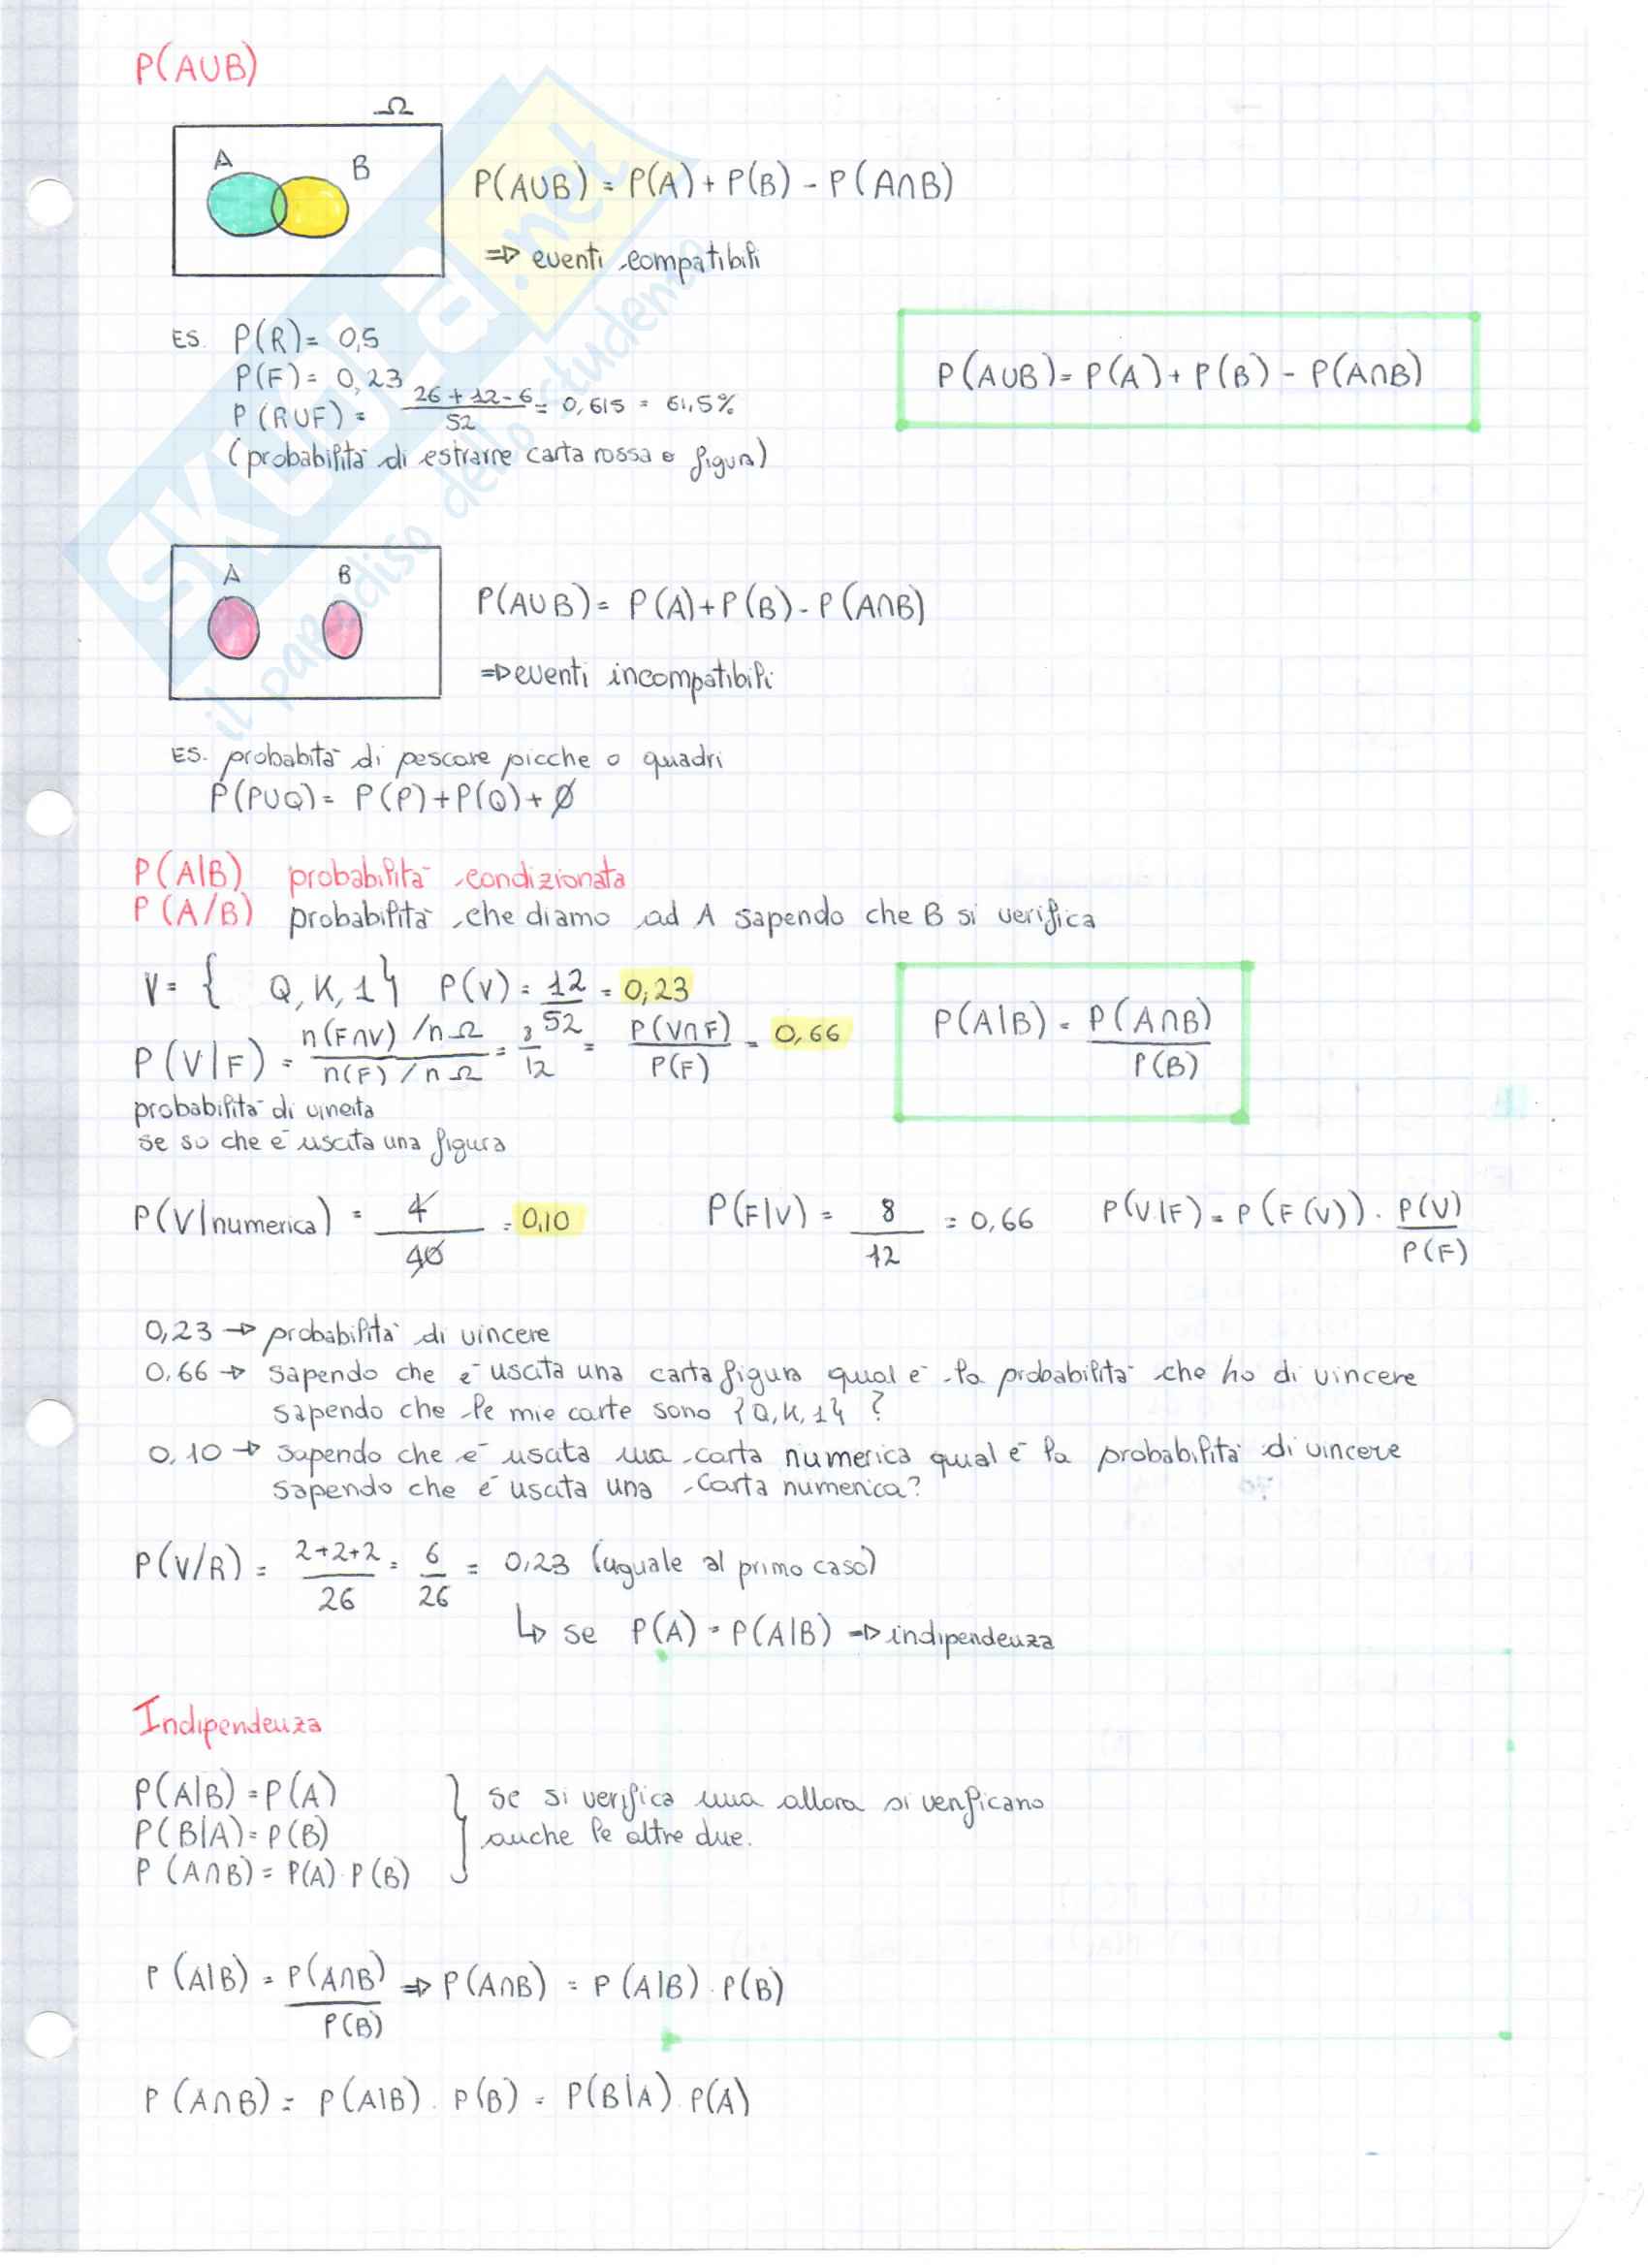 P(A∪B)
Ω
A B
P(A∪B) = P(A) + P(B) - P(A∩B)
=> eventi compatibili
ES. P(R) = 0,5
P(F) = 0,23
P(R∪F) = 26+12-6/52 = 0,615 = 61,5%
(probabilità di estrarre carta rossa o figura)
P(A∪B) = P(A) + P(B) - P(A∩B)
A B
P(A∪B) = P(A)+P(B) - P(A∩B)
=> eventi incompatibili
ES. probabità di pescare picche o quadri
P(P∪Q) = P(P)+P(Q)+ Ø
P(A|B) probabilità condizionata
P(A/B) probabilità che diamo ad A sapendo che B si verifica
V = { Q, K, 1} P(V) = 12/52 = 0,23
P(V|F) = n(F∩V)/nΩ / n(F)/nΩ = 8/12 = P(V∩F)/P(F) = 0,66
probabilità di vincita
se so che è uscita una figura
P(A|B) = P(A∩B)/P(B)
P(V|numerica) = 4/40 = 0,10 P(F|V) = 8/12 = 0,66 P(V|F) = P(F(V)) · P(V)/P(F)
0,23 → probabilità di vincere
0,66 → sapendo che è uscita una carta figura qual è la probabilità che ho di vincere
sapendo che le mie carte sono {Q, K, 1} ?
0,10 → sapendo che è uscita una carta numerica qual è la probabilità di vincere
sapendo che è uscita una carta numerica?
P(V/R) = 2+2+2/26 = 6/26 = 0,23 (uguale al primo caso)
↳ se P(A) = P(A|B) => indipendenza
Indipendenza
P(A|B) = P(A)
P(B|A) = P(B)
P(A∩B) = P(A)·P(B)
} se si verifica una allora si verificano
anche le altre due.
P(A|B) = P(A∩B)/P(B) => P(A∩B) = P(A|B)·P(B)
P(A∩B) = P(A|B)·P(B) = P(B|A)·P(A)
SKUOLA.net
il paradiso dello studente